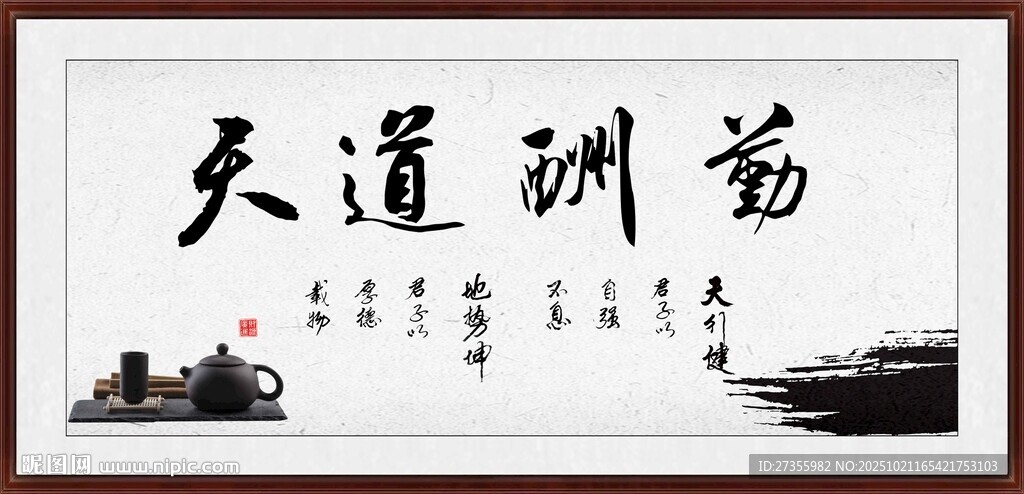 天道酬勤
天行健
君子以
自强
不息
地势坤
君子以
厚德
载物
昵图网 www.nipic.com
ID:27355982 NO:20251021165421753103